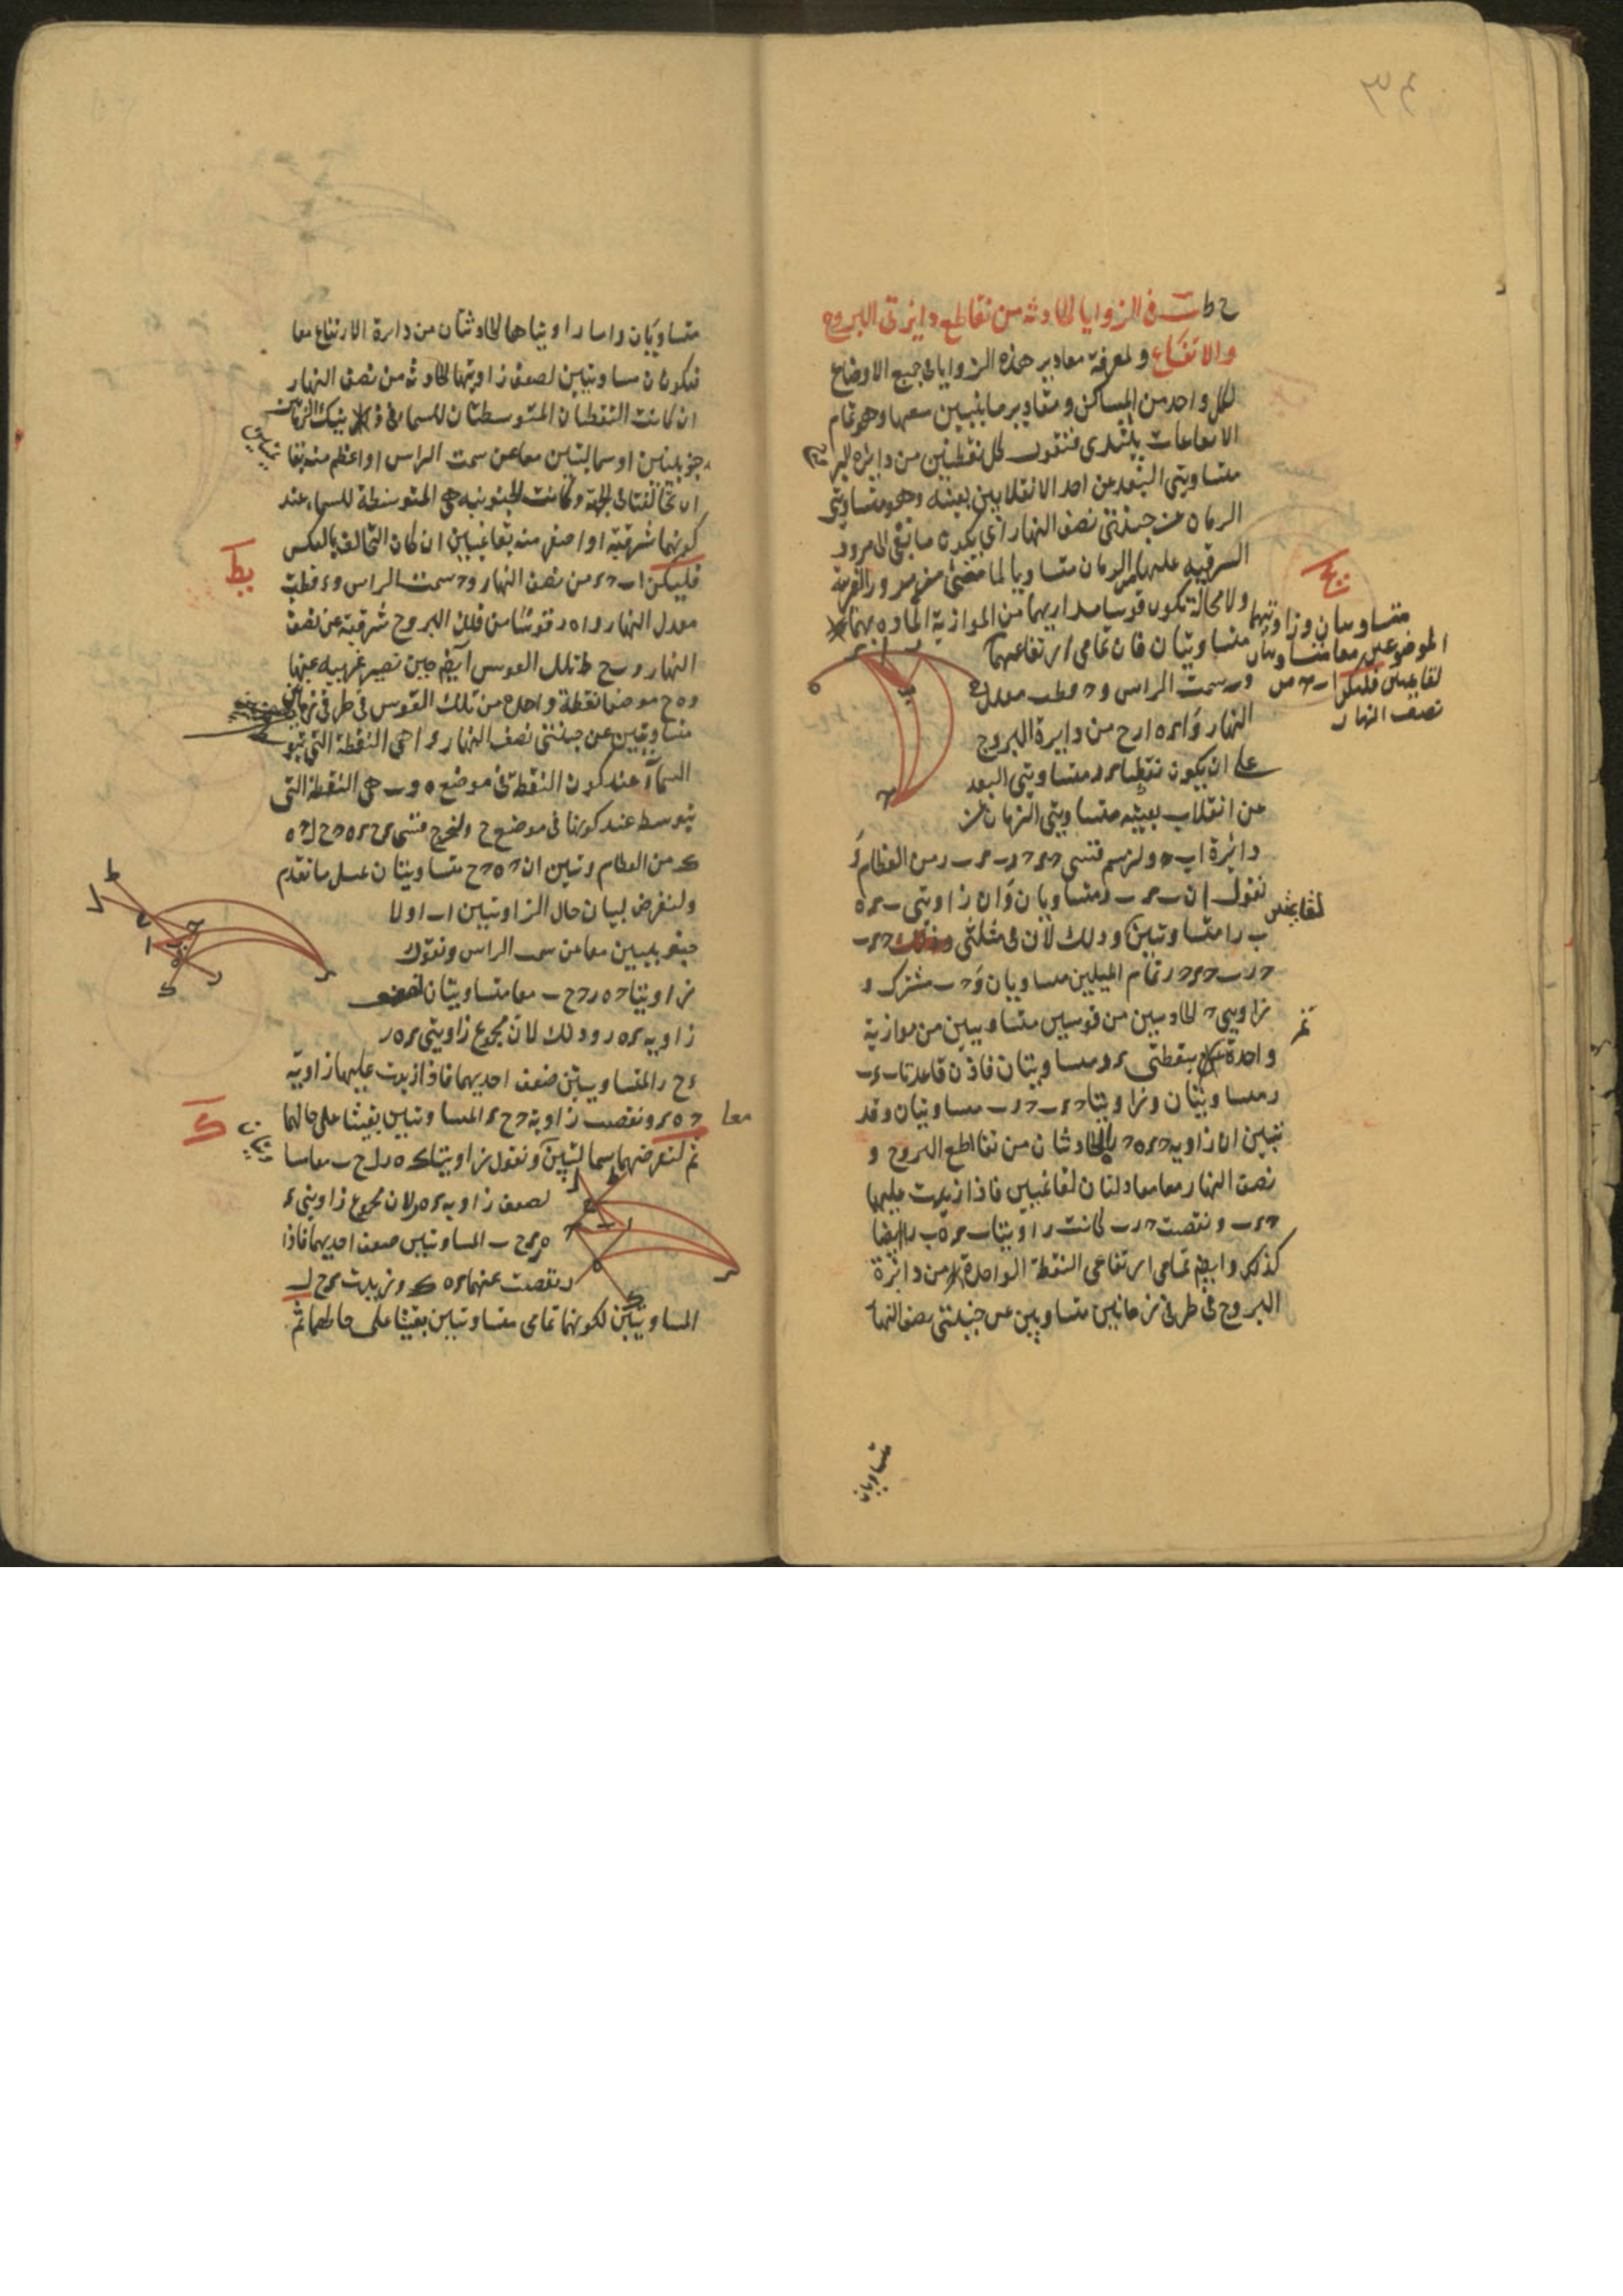 في الزوايا الحادثة من تقاطع دايرتي البروج
والارتفاع ولمعرفة مقادير هذه الزوايا في جميع الاوضاع
لكل واحد من المساكن ومقادير ما بين سمتها وهو تمام
الارتفاعات يبتدى فنقول كل نقطتين من دايرة البر
متساويتي البعد عن احد الانقلابين بعينه وهو متساويتي
الزمان عن جنبتي نصف النهار اي يكون ما بقي الى مرور
الشرقية عليها من الزمان متساويا لما مضى من مرور الغربية
ولا محالة تكون قوسا مداريهما من الموازية المارة بهما
متساويتان فان تمامي ارتفاعيهما
متساويان وزاويتيهما
الموضوعين معا متساويتان
لقايمتين فليكن ا ب ح من
نصف النهار
و ب سمت الراس و ح قطب معدل
النهار و ا ى ه ا ر ح من دايرة البروج
على ان يكون نقطتا ى ر متساويتي البعد
عن انقلاب بعينه متساويتي الزمان من
دائرة ا ب ح ولنرسم قسي ح ى ح ر ب ى ب ر من العظام و
نقول ان ب ى ب ر متساويان وان زاويتي ب ى ه
ب ر ا متساويتين وذلك لان في مثلثي ح ى ب
ح ر ب ح ى ح ر تمام الميلين متساويان و ح ب مشترك و
زاويتي ح الحادثتين من قوسين متساويتين من موازية
واحدة بنقطتي ى ر متساويتان فاذن قاعدتا ب ى ب
ر متساويتان وزاويتا ح ى ب ح ر ب متساويتان وقد
تبين ان زاوية ح ى ه ح ر ا الحادثتان من تقاطع البروج و
نصف النهار معا معادلتان لقائمتين فاذا زيدت عليها
ح ى ب ونقصت ح ر ب كانت زاويتا ب ى ه ب ر ا ايضا
كذلك وايضا تمامي ارتفاعي النقطة الواحدة من دائرة
البروج في طرفي زمانين متساويين عن جنبتي نصف النها
متساويان
متساويان واما زاويتاها الحادثتان من دايرة الارتفاع معا
فيكونان مساويتين لضعف زاويتها الحادثة من نصف النهار
ان كانت النقطتان المتوسطتان للسماء في ذينك الزمانين
جنوبيتين او شماليتين معا عن سمت الراس او اعظم منه بقا
ئمتين
ان تخالفتا في الجهة وكانت الجنوبية هي المتوسطة للسماء عند
كونها شرقية او اصغر منه بقائمتين ان كان التخالف بالعكس
يط
فليكن ا ب ح ى من نصف النهار و ح سمت الراس و ى قطب
معدل النهار و ا ه ر قوسا من فلك البروج شرقية عن نصف
النهار و ب ح ط تلك القوس ايضا حين تصير غربية عنها
و ه ح موضعا نقطة واحدة من تلك القوس في طرفي زمانين
متساويين عن جنبتي نصف النهار و ا هي النقطة التي تتو
السماء عند كون النقطة في موضع ه و ب هي النقطة التي
يتوسط عند كونها في موضع ح ولنخرج قسي ى ح ى ه ح ح ل ح ه
ك من العظام وتبين ان ح ه ح ح متساويتان بمثل ما تقدم
ولنفرض لبيان حال الزاويتين ا ب اولا
جنوبيتين معا من سمت الراس ونقول
زاويتا ح ه ر ح ح ب معا متساويتان لضعف
زاوية ى ه ر وذلك لان مجموع زاويتي ى ه ر
ى ح ر المتساويتين ضعف احديهما فاذا زيدت عليها زاوية
ح ه ى ونقصت زاوية ح ح ى المتساويتين بقيتا على حالهما
معا
ك
ثم لنفرضهما شماليتين ونقول زاويتا ك ه ر ل ح ب معا مسا
ويتان
لضعف زاوية ى ه ر لان مجموع زاويتي ى
ه ر ى ح ب المساويتين ضعف احديهما فاذا
نقصت عنهما ى ه ك وزيدت ى ح ل
المساويتين لكونهما تمامي متساويتين بقيتا على حالهما ثم